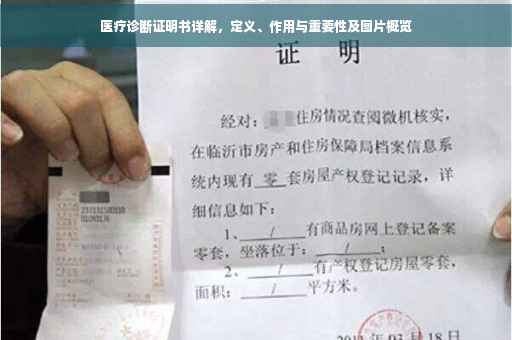 医疗诊断证明书详解，定义、作用与重要性及图片概览
证 明
经对：住房情况查阅微机核实，
在临沂市房产和住房保障局档案信息系
统内现有 零 套房屋产权登记记录，详
细信息如下：
1、 / 有商品房网上登记备案
零套，坐落位于： / ；
2、 / 有产权登记房屋零套，
面积： / 平方米。